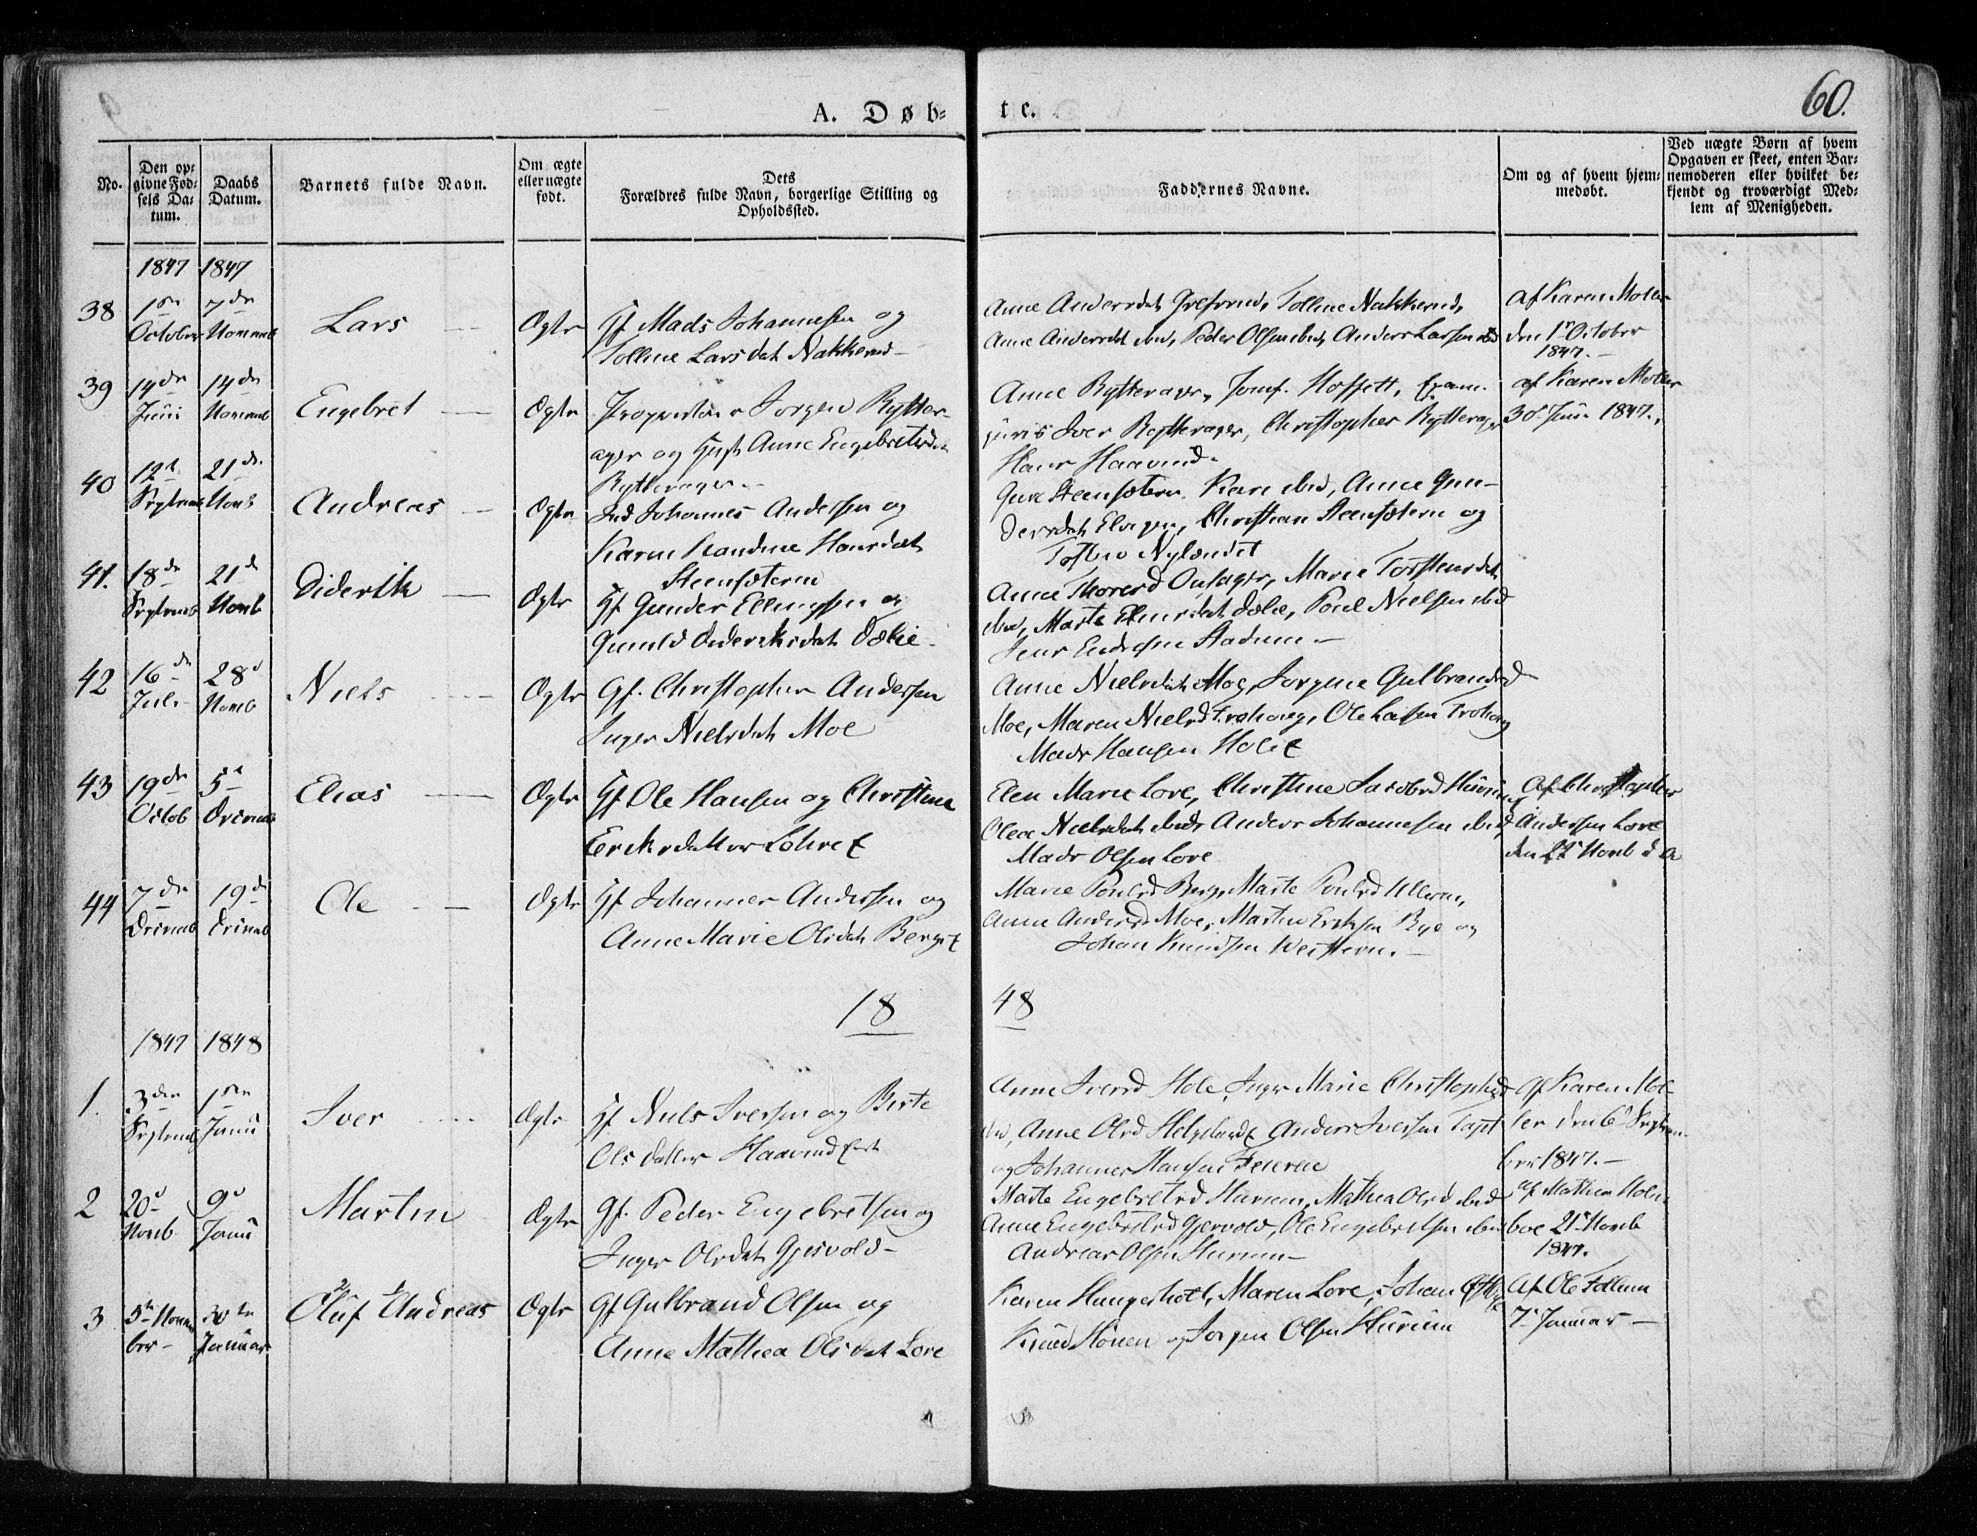 60.
A. Døb-
te.
No.
Den op-
givne Fød-
sels Da-
tum.
Daabs
Datum.
Barnets fulde Navn.
Om ægte
eller uægte
født.
Dets
Forældres fulde Navn, borgerlige Stilling og
Opholdssted.
Faddernes Navne.
Om og af hvem hjem-
medøbt.
Ved uægte Børn af hvem
Opgaven er skeet, enten Bar-
nemoderen eller hvilket be-
kjendt og troværdigt Med-
lem af Menigheden.
1847 1847
38 1ste October 7de Novemb Lars Ægte
Gf Mads Johannesen og
Tolline Larsdat Nakkerud
Anne Andersdat
Tolline Nakkerud,
Anne Andersdat ibid, Peder Olsen ibid, Anders Larsen ibid
af Karen Moller
den 1ste October
1847.
39 14de Juni 14de Novemb Engebret Ægte
Proprietær Jørgen Rytter-
ager og Hust Anne Engebretsdat
Rytterager
Anne Rytterager, Jomf. Hoffett, Exam.
juris Iver Rytterager, Christopher Rytterager
Hans Haavind
af Karen Moller
30te Juni 1847.
40 12t Septemb 21de Novb Andreas Ægte
Ind Johannes Andersen og
Karen Hansdat
Steensætern
Steensætern, Kari ibid, Anne Gun-
dersdat Elvigen, Christian Steensætern og
Nylændet
41. 18de Septemb 21d Novb Diderik Ægte
Gf Gunder Ellingsen og
Gunild Dideriksdat Dælie
Anne Thoresd Onsager, Marie Torstensdat
ibid, Marte Dælie, Poul Nielsen ibid
Jens Endresen Stadum
42 16de Juli 28d Novb Niels Ægte
Gf. Christopher Andersen
Inger Nielsdat Moe
Anne Nielsdat Moe, Jørgine Gulbrandsd
Moe, Maren Nielsd Frohoug, Ole Larsen Frohoug
Mads Hansen Hole
43 19de Octob 5t Decemb Elias Ægte
Gf Ole Hansen og Christine
Eriksdatter
Elen Marie Lore, Christine Jacobsd Hurum
Olea Nielsdat ibid, Anders Johannesen ibid
Mads Olsen Lore
Af Christopher
Andersen Lore
den Novb d A
44 7de Decemb 19de Decemb Ole Ægte
Gf Johannes Andersen og
Anne Marie Olsdat Berget
Marie Poulsd Berg, Marte Poulsd Ulleren,
Anne Andersd Moe, Martin Eriksen Bye og
Johan Knudsen Western.
18 48
1847 1848
1. 3den Septemb 1ste Janu Iver Ægte
Gf Niels Iversen og Berte
Olsdatter
Anne Iversd Hole, Inger Marie Christophersd
ibid, Anne Olsd Helgeland, Anders Iversen
og Johannes Hansen
af Karen Mol-
ler den 6te Septem-
ber 1847.
2 20d Novb 9d Janu Martin Ægte
Gf. Peder Engebretsen og
Inger Olsdat Gjesvold
Marte Engebretsd Hurum, Mathea Olsd ibid
Anne Engebretsd Gjesvold, Ole Engebretsen ibid
Andreas Olsen Hurum
af Mathea
21 Novb
1847.
3 5te Novem-
ber 30te Januar Oluf Andreas Ægte
Gf Gulbrand Olsen og
Anne Mathea Olsdat Lore
Karen Hungerholt, Maren Lore, Johan
Knud Hønen og Jørgen Olsen Hurum
Af Ole
7 Januar